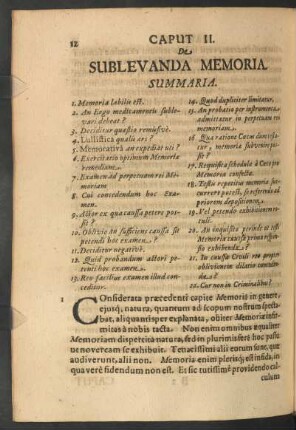 12
CAPUT II.
De
SUBLEVANDA MEMORIA.
SUMMARIA.
1. Memoria labilis est.
2. An Ergo medicamentis suble-
vari debeat?
3. Deciditur quæstio remissivè.
4. Lullistica qualis ars?
5. Memorativa an expediat uti?
6. Exercitatio optimum Memoriæ
remedium.
7. Examen ad perpetuam rei Me-
moriam
8. Cui concedendum hoc Exa-
men.
9. Alter ex qua caussa petere pos-
sit?
10. Oblivio an sufficiens caussa sit
petendi hoc examen?
11. Deciditur negativè.
12. Quid probandum actori po-
tenti hoc examen.
13. Reo facilius examen illud con-
ceditur.
14. Quod dupliciter limitatur.
15. An probatio per instrumenta
admittatur in perpetuam rei
memoriam.
16. Qua ratione Cæcus
memoriæ subvenire pos-
sit?
17. Requisita schedulæ à Cæco pro
Memoria confectæ.
18. Testis repetitio memoriæ suc-
currere potest, se referens ad
priorem depositionem.
19. Vel petendo exhibitionem ro-
tuli.
20. An inquisito petenti ob
Memoriæ caussa prima respon-
sio exhibenda?
21. In caussa Civili reo propter
oblivionem dilatio conceden-
da.
22. Cur non in Criminalibus?
1 COnsiderata præcedenti capite Memoria in genere,
ejusq; natura, quantum ad scopum nostrum specta-
bat, aliquantisper explanata, obiter Memoriæ infir-
mitas à nobis tacta. Non enim omnibus æqualiter
Memoriam dispertita natura, sed in plurimis ferè hoc passu
ut novercam se exhibuit. Tenacissimi alii eorum sunt, quæ
audiverunt, alii non. Memoria enim plerisq; est infida, in
qua verè fidendum non est. Et sic tutissimè providendo cal-
culum